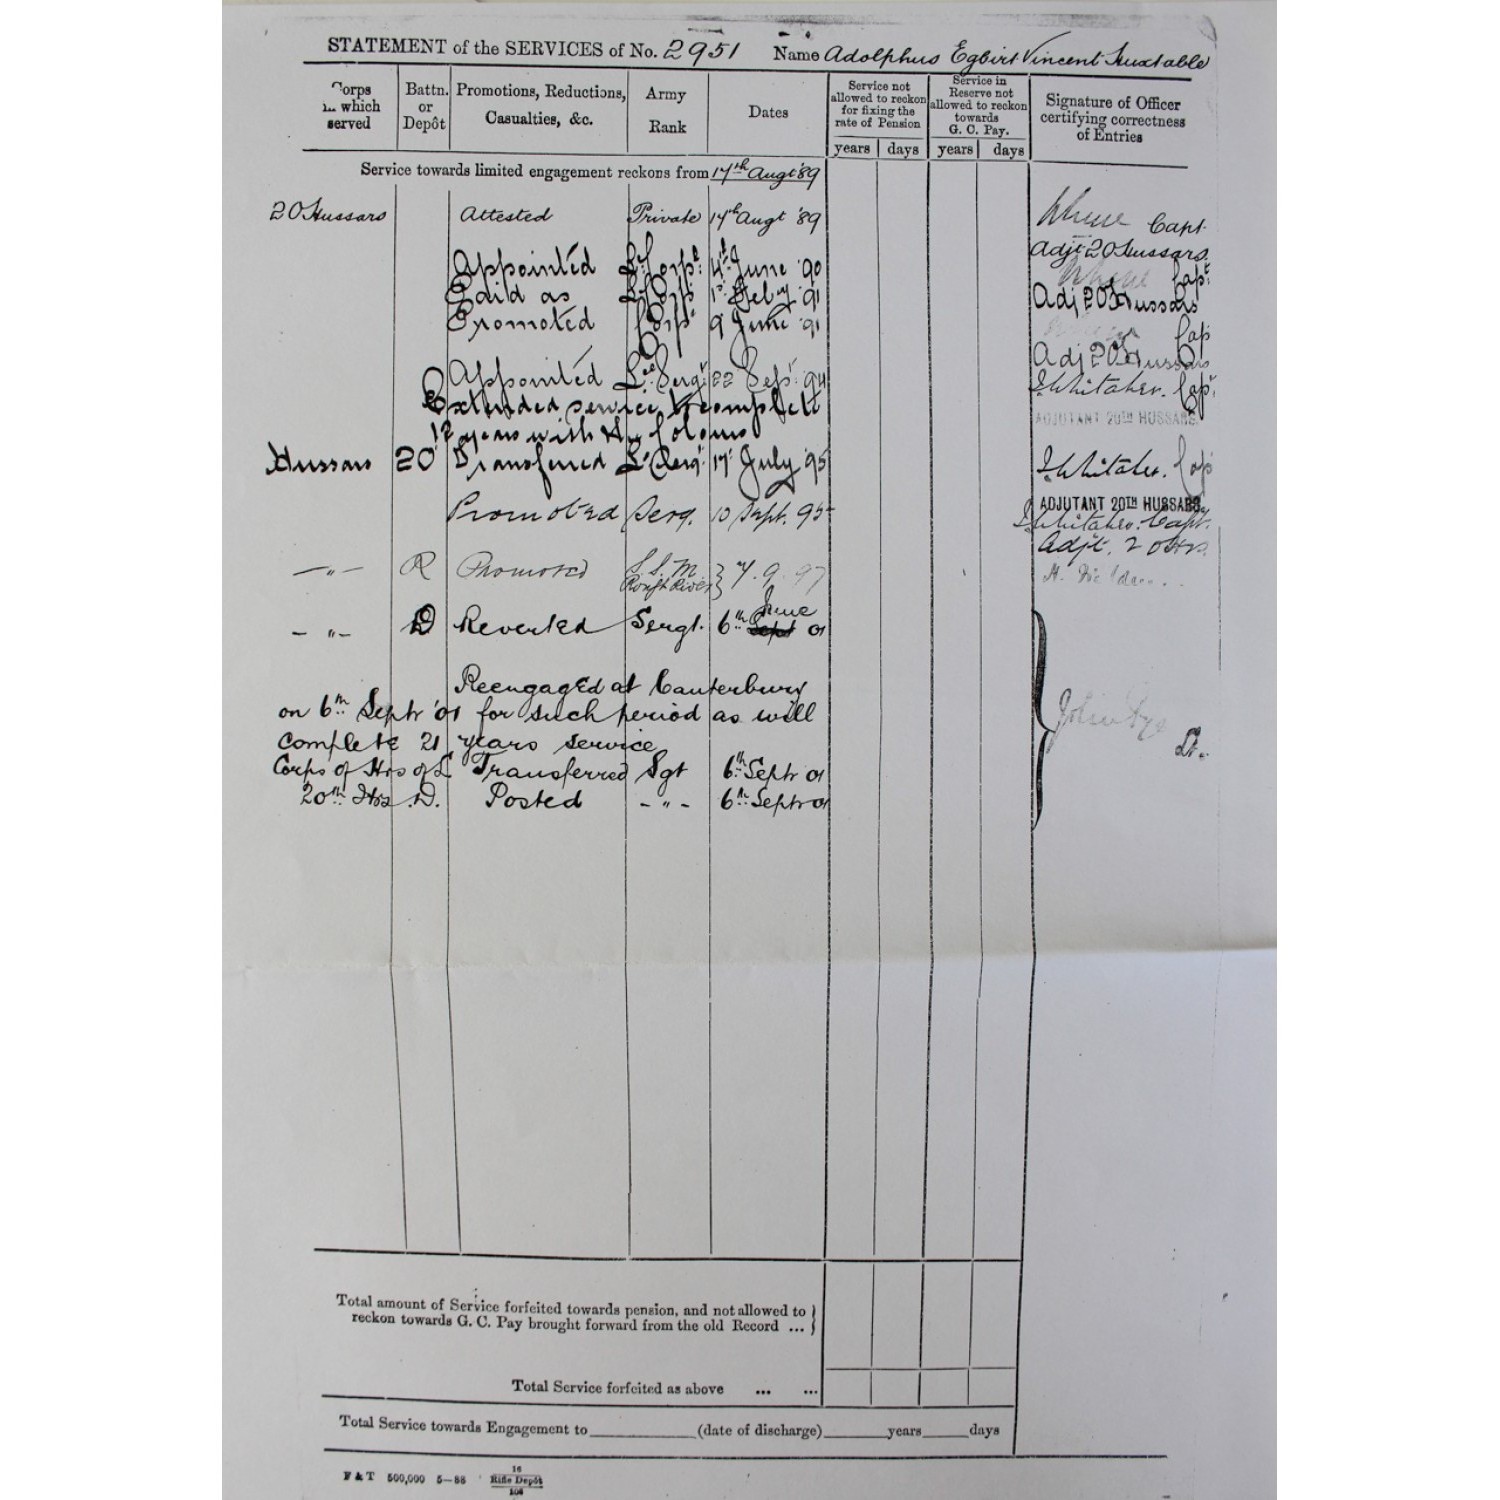 STATEMENT of the SERVICES of No. 2951 Name Adolphus Egbirt Vincent Huxtable
Corps in which served
Battn. or Depôt
Promotions, Reductions, Casualties, &c.
Army Rank
Dates
Service not allowed to reckon for fixing the rate of Pension
Service in Reserve not allowed to reckon towards G. C. Pay.
Signature of Officer certifying correctness of Entries
years days years days
Service towards limited engagement reckons from 14th Augt '89
20 Hussars Attested Private 14th Augt '89
Capt.
Adjt 20 Hussars.
Appointed L. Corpl. 4th June '90
Capt
Paid as L. Corpl 1st Feby '91
Adj 20 Hussars
Promoted Corpl 9 June '91
Cap
Adj 20 Hussars
Appointed Lce Sergt 22 Sept. '94
J. Whitaker. Capt.
Extended service to complete
ADJUTANT 20TH HUSSARS.
12 years with the Colours
Hussars 20 Transferred L. Sergt 17 July '95
J. Whitaker. Cap
ADJUTANT 20TH HUSSARS.
Promoted Serg. 10 Sept. 95
J. Whitaker. Capt.
Adjt. 20 Hrs.
—"— R Promoted S. S. M. Rough Rider } 7. 9. 97
—"— D Reverted Sergt. 6th June 01
Reengaged at Canterbury
on 6th Septr '01 for such period as will
complete 21 years service
Corps of Hrs of L Transferred Sgt 6th Septr 01
20th Hrs D. Posted —"— 6th Septr 01
Lt.
Total amount of Service forfeited towards pension, and not allowed to }
reckon towards G. C. Pay brought forward from the old Record ... }
Total Service forfeited as above ... ...
Total Service towards Engagement to (date of discharge) years days
F & T 500,000 5—88 16 Rifle Depôt 108